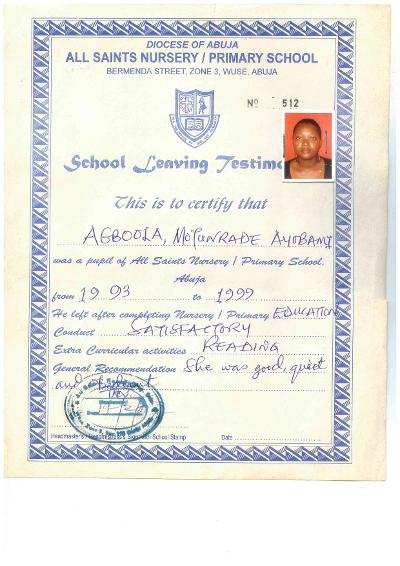 DIOCESE OF ABUJA
ALL SAINTS NURSERY / PRIMARY SCHOOL
BERMENDA STREET, ZONE 3, WUSE, ABUJA
Nº 512
School Leaving Testimo
This is to certify that
AGBOOLA, MOTUNRADE AYOBAMI
was a pupil of All Saints Nursery / Primary School.
Abuja
from 1993 to 1999
He left after completing Nursery / Primary EDUCATION
Conduct SATISFACTORY
Extra Curricular activities READING
General Recommendation She was good, quiet
and
Headmaster's / School Stamp Date